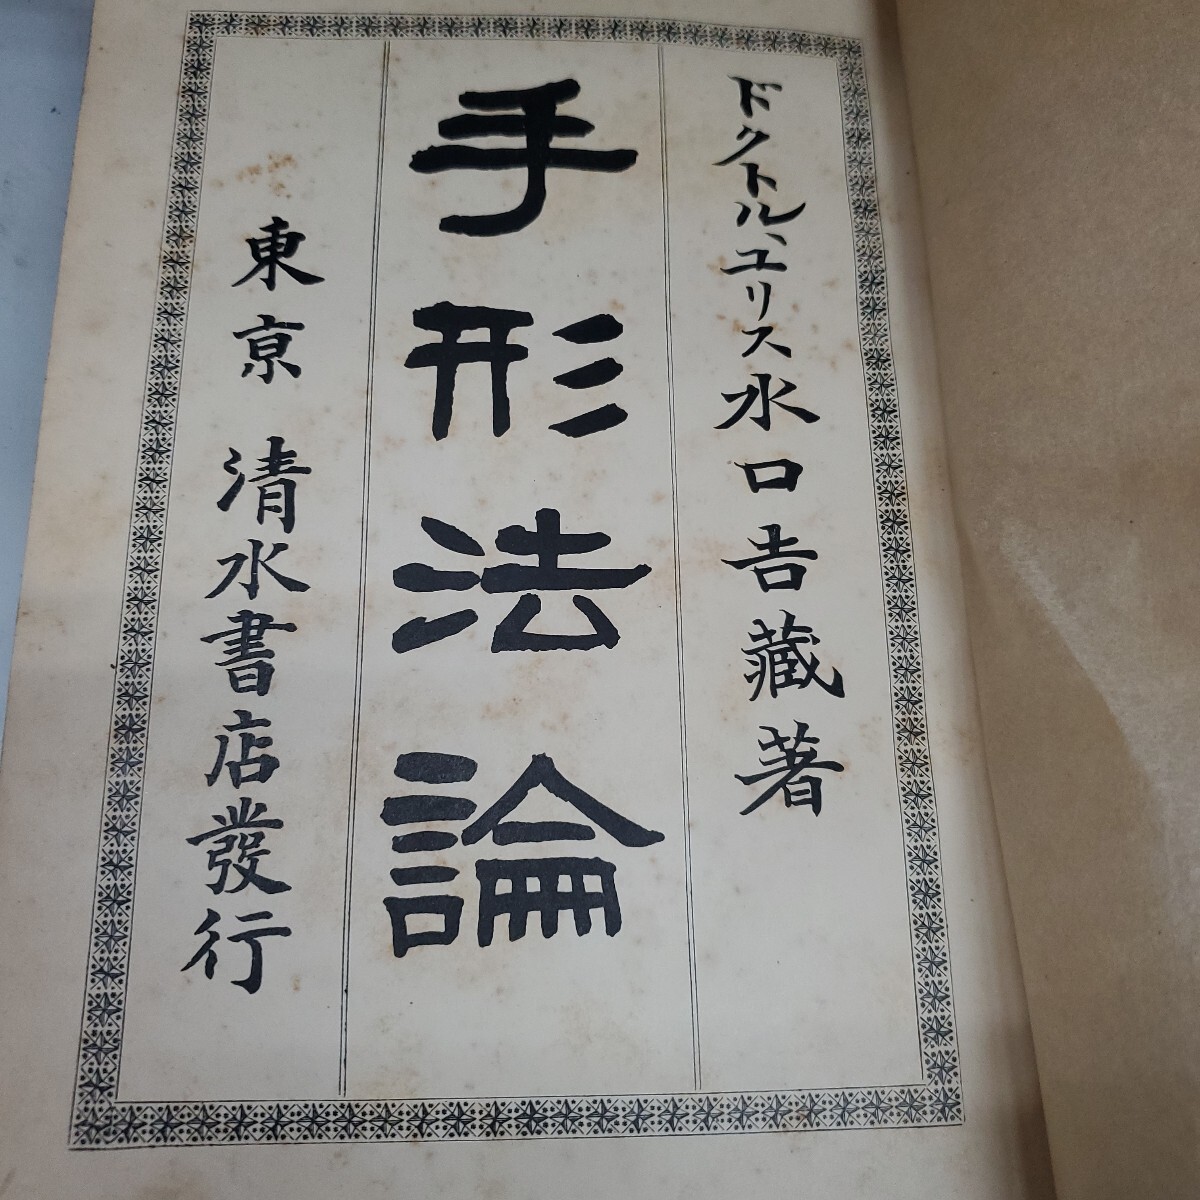 ドクトル、ユリス水口吉藏著
手形法論
東京 清水書店發行